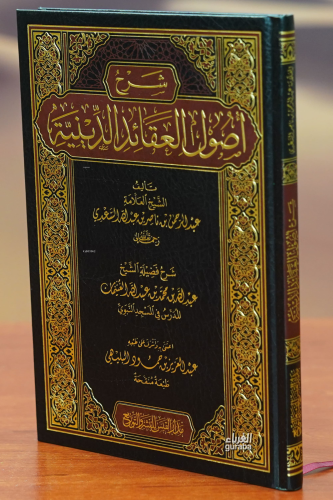 شرح
أصول العقائد الدينية
تأليف
الشيخ العلامة
عبد الرحمن بن ناصر بن عبد الله السعدي
رحمه الله تعالى
شرح فضيلة الشيخ
عبد الله بن محمد بن عبد الله
المدرس في المسجد النبوي
اعتنى به وأشرف على طبعه
عبد العزيز بن
طبعة منقحة
الغرباء
guraba